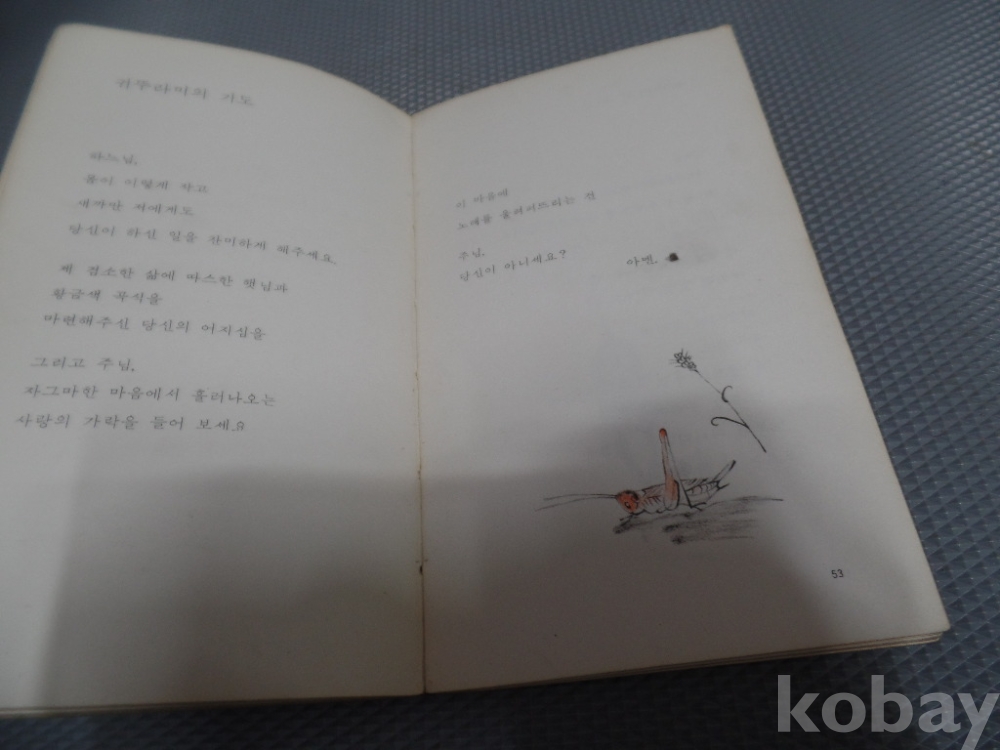 귀뚜라미의 기도
하느님,
몸이 이렇게 작고
새까만 저에게도
당신이 하신 일을 찬미하게 해주세요.
제 검소한 삶에 따스한 햇님과
황금색 곡식을
마련해주신 당신의 어지심을
그리고 주님,
자그마한 마음에서 흘러나오는
사랑의 가락을 들어 보세요
이 마음에
노래를 울려퍼뜨리는 건
주님,
당신이 아니세요?
아멘.
53
kobay